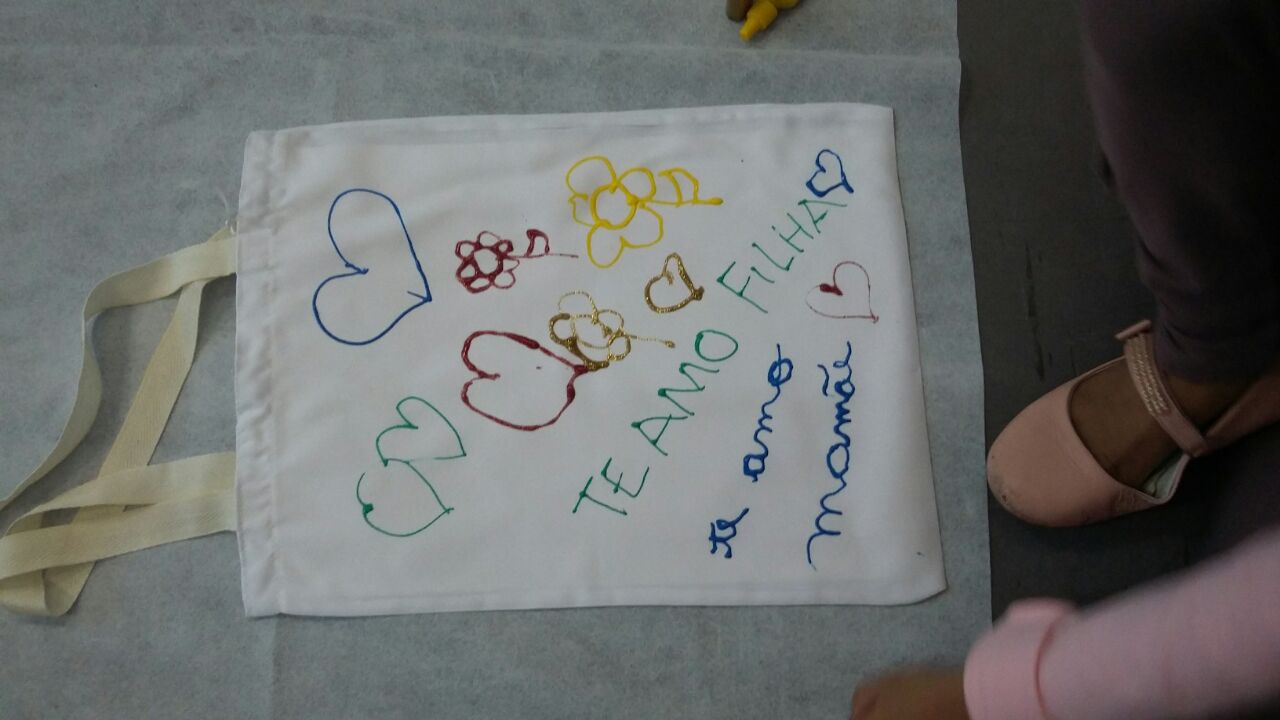 TE AMO FILHA
te amo
mamãe